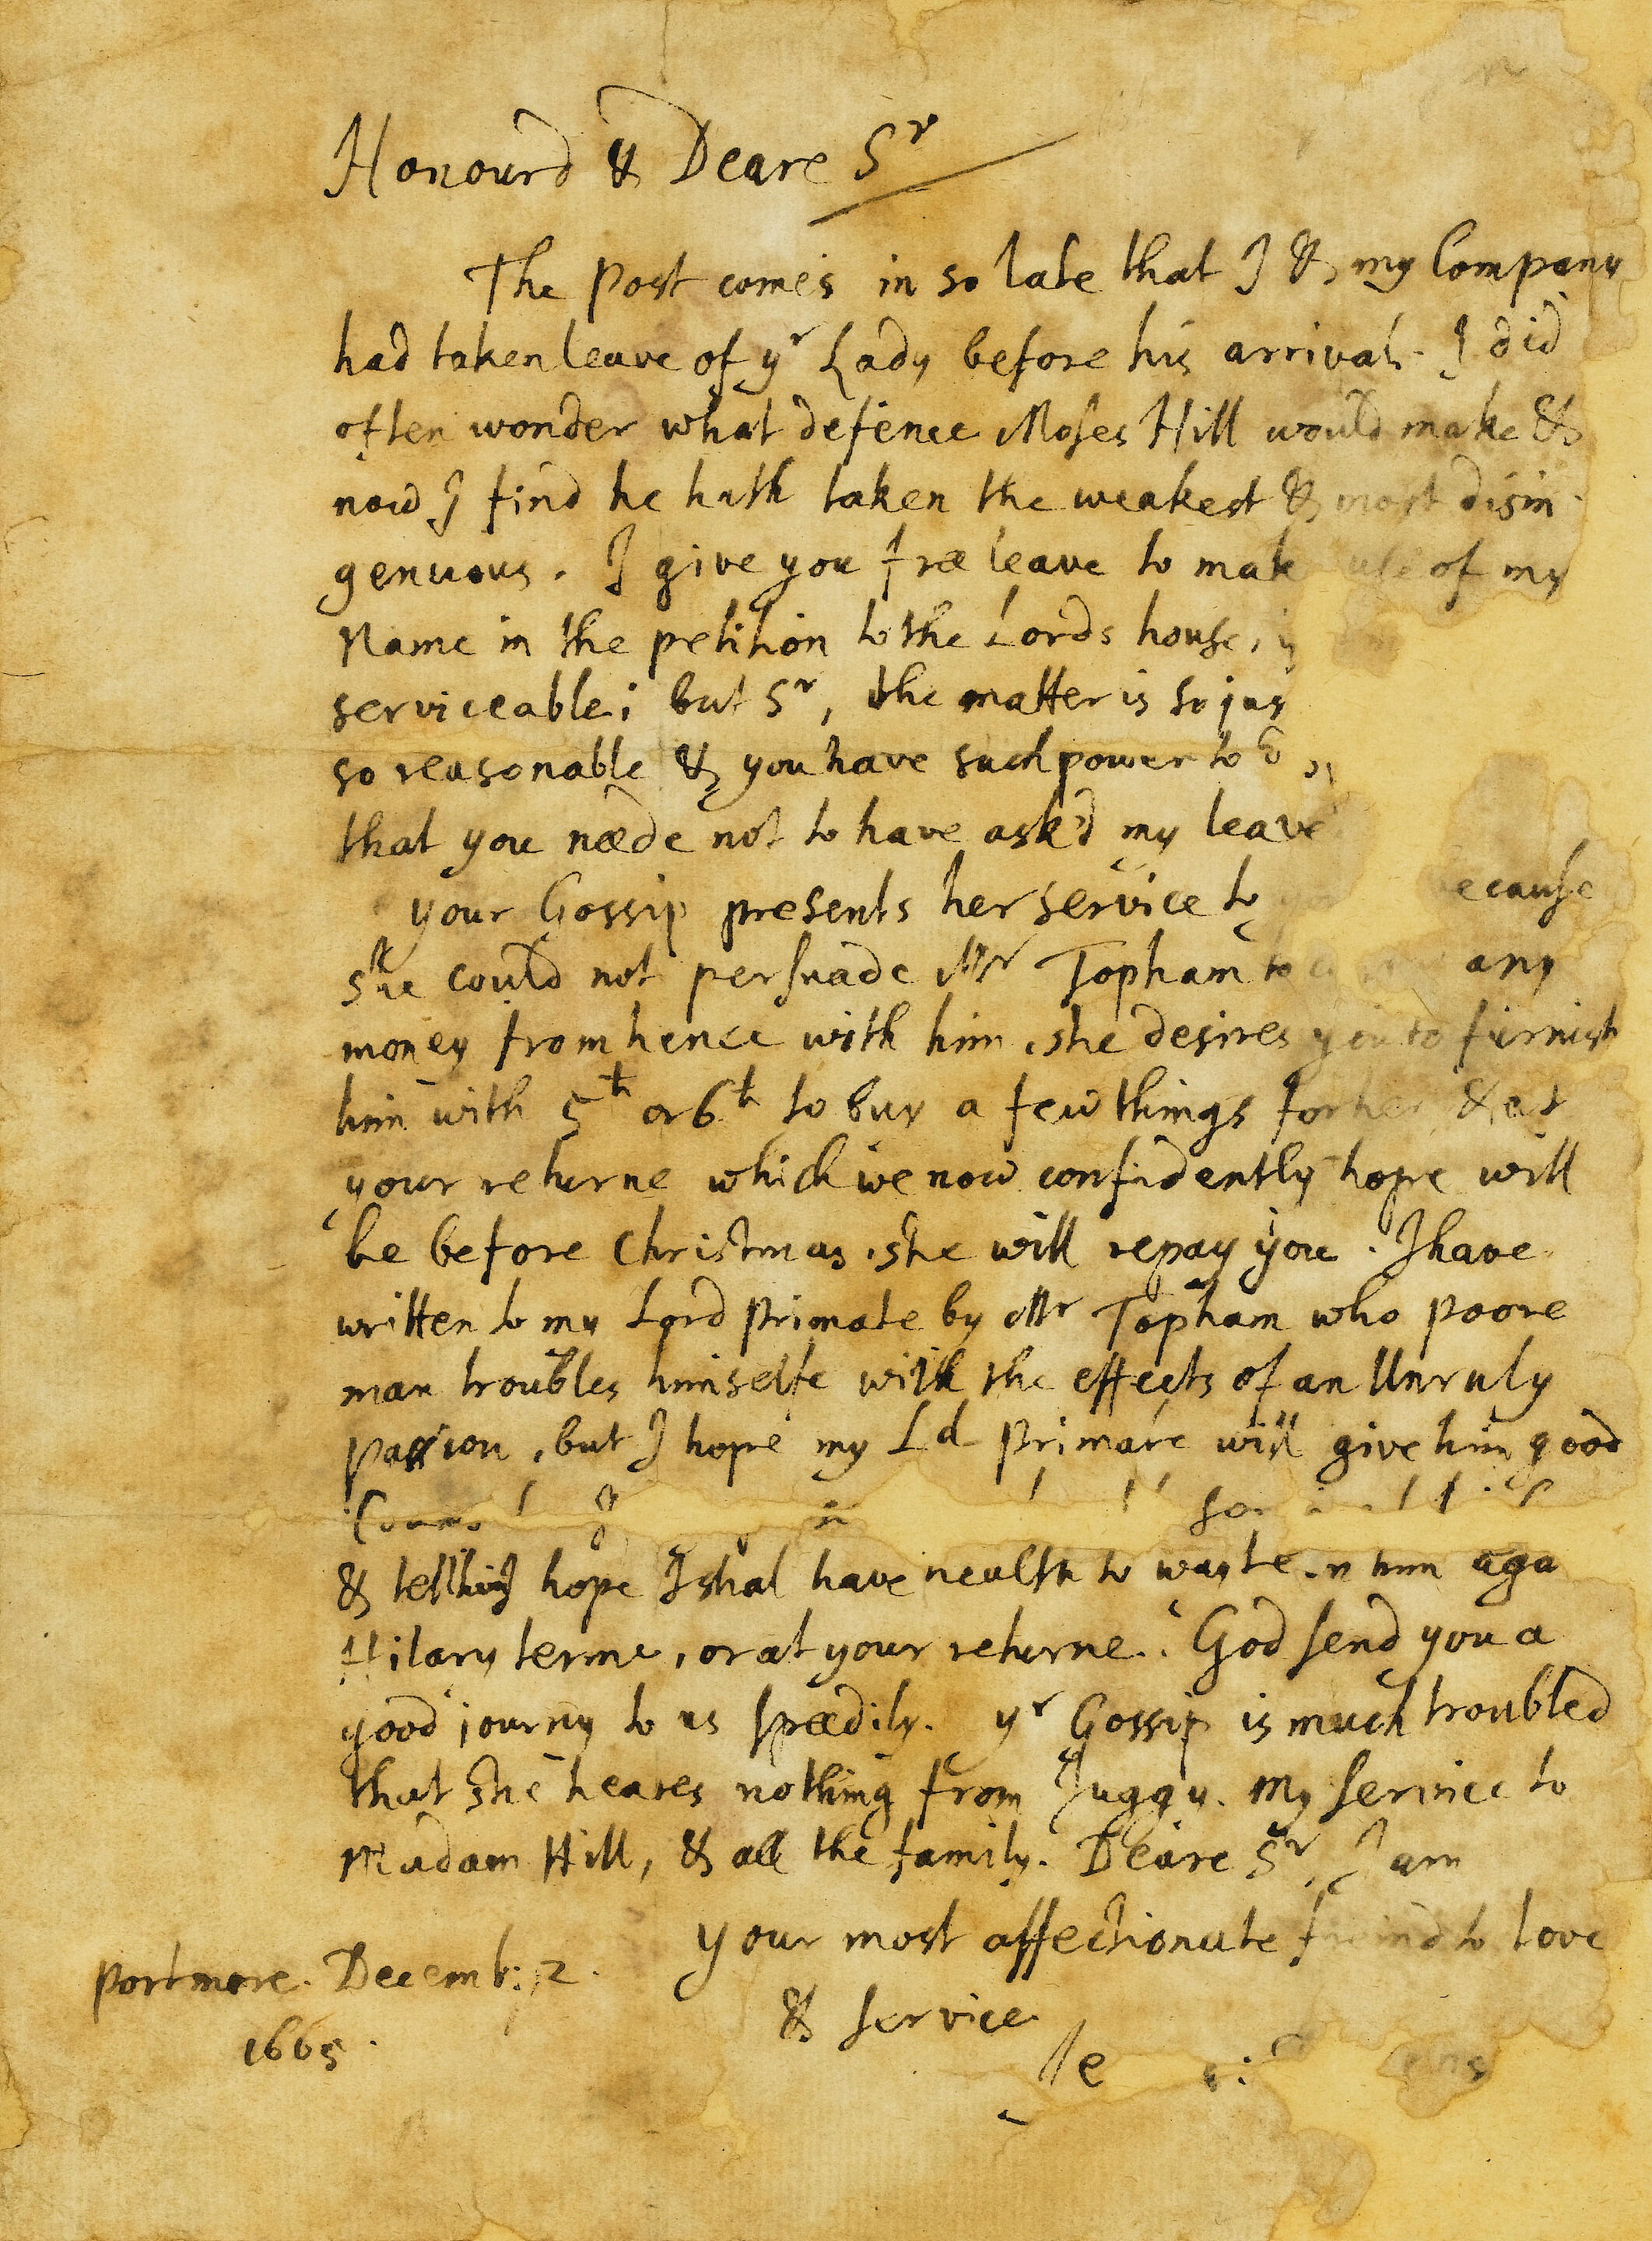 Honourd & Deare Sr
The Post comes in so late that I & my Company
had taken leave of yr Lady before his arrival. I did
often wonder what defence Moses Hill would make &
now I find he hath taken the weakest & most disin-
genuous. I give you free leave to make use of my
Name in the petition to the Lords house,
serviceable; but Sr, the matter is so jus
so reasonable & you have such power to
that you neede not to have ask'd my leave
your Gossip presents her service to you because
she could not persuade Mr Topham to any
money from hence with him, she desires you to furnish
him with 5 or 6 to buy a few things for her & at
your returne which we now confidently hope will
be before Christmas, she will repay you. I have
written to my Lord Primate by Mr Topham who poore
man troubles himselfe with the effects of an Unruly
Passion, but I hope my Ld Primate will give him good
& hope I shal have to him aga
Hilary terme, or at your returne. God send you a
good journy to us speedily. yr Gossip is much troubled
that she heares nothing from Juggy. My service to
Madam Hill, & all the family. Deare Sr, I am
your most affectionate freind to love
& service
Portmore. Decemb: 2.
1665.